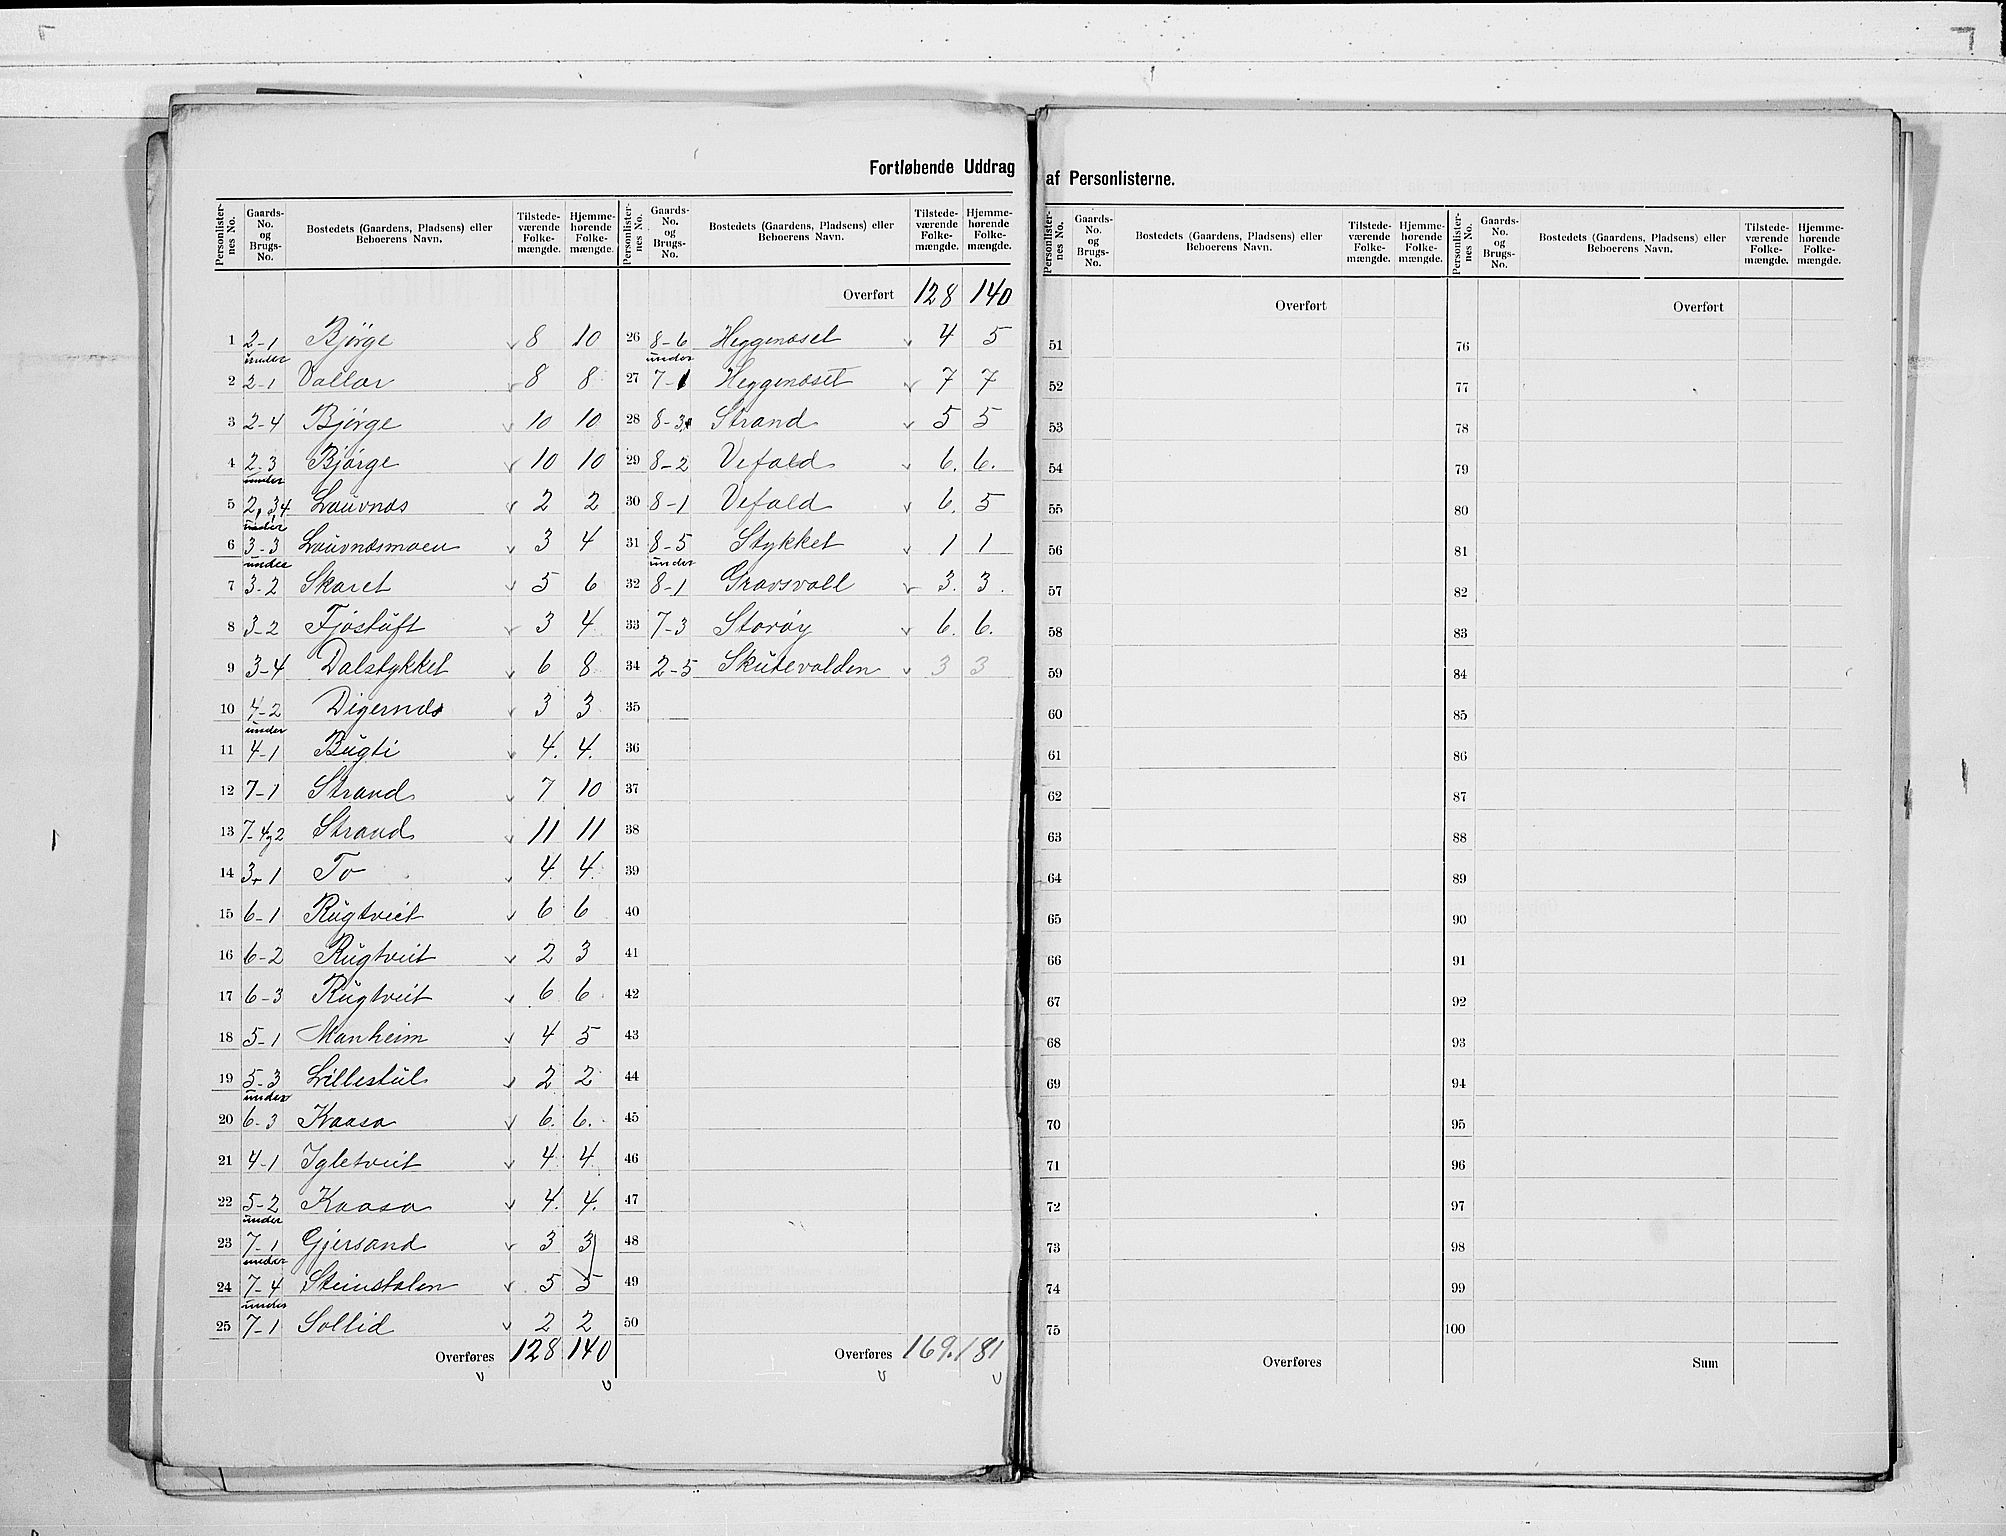 Fortløbende Uddrag af Personlisterne.
Personlister-nes No. Gaards-No. og Brugs-No. Bostedets (Gaardens, Pladsens) eller Beboerens Navn. Tilstede-værende Folke-mængde. Hjemme-hørende Folke-mængde.
1 2-1 Bjørge 8 10
2 under 2-1 Vallar 8 8
3 2-4 Bjørge 10 10
4 2-3 Bjørge 10 10
5 under 2, 3, 4 Lauvnæs 2 2
6 under 3-3 Lauvnæsmoen 3 4
7 under 3-2 Skaret 5 6
8 3-2 Fjøstuft 3 4
9 3-4 Dalstykket 6 8
10 4-2 Digernæs 3 3
11 under 4-1 Bugti 4. 4.
12 7-1 Strand 7 10
13 7-4, 2 Strand 11 11
14 3-1 To 4 4
15 6-1 Rugtveit 6 6
16 6-2 Rugtveit 2 3
17 6-3 Rugtveit 6 6
18 5-1 Manheim 4 5
19 5-3 Lillestul 2 2
20 under 6-3 Kaasa 6. 6.
21 4-1 Igletveit 4 4
22 5-2 Kaasa 4. 4.
23 under 7-1 Gjersand 3 3
24 under 7-4 Steinstølen 5 5
25 under 7-1 Sollid 2 2
Overføres 128 140
Personlister-nes No. Gaards-No. og Brugs-No. Bostedets (Gaardens, Pladsens) eller Beboerens Navn. Tilstede-værende Folke-mængde. Hjemme-hørende Folke-mængde.
Overført 128 140
26 8-6 Heggenæset 4 5
27 under 7-1 Heggenæset 7 7
28 8-3 Strand 5 5
29 8-2 Vefald 6. 6.
30 8-1 Vefald 6. 5
31 8-5 Stykket 1 1
32 under 8-1 Gravsvall 3. 3.
33 7-3 Storøy 6. 6.
34 2-5 Skutevolden 3 3
35
36
37
38
39
40
41
42
43
44
45
46
47
48
49
50
Overføres 169. 181
Personlister-nes No. Gaards-No. og Brugs-No. Bostedets (Gaardens, Pladsens) eller Beboerens Navn. Tilstede-værende Folke-mængde. Hjemme-hørende Folke-mængde.
Overført
51
52
53
54
55
56
57
58
59
60
61
62
63
64
65
66
67
68
69
70
71
72
73
74
75
Overføres
Personlister-nes No. Gaards-No. og Brugs-No. Bostedets (Gaardens, Pladsens) eller Beboerens Navn. Tilstede-værende Folke-mængde. Hjemme-hørende Folke-mængde.
Overført
76
77
78
79
80
81
82
83
84
85
86
87
88
89
90
91
92
93
94
95
96
97
98
99
100
Sum